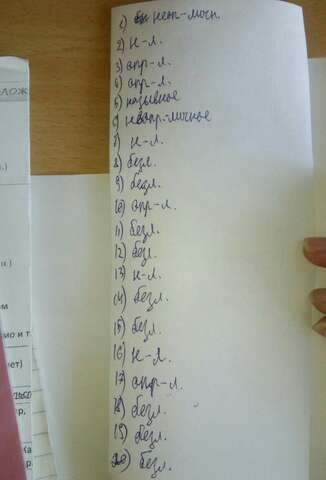 1) неп-личн.
2) н-л.
3) опр-л.
4) опр-л.
5) назывное
6) неопр-личное
7) н-л.
8) безл.
9) безл.
10) опр-л.
11) безл.
12) безл.
13) н-л.
14) безл.
15) безл.
16) н-л.
17) опр-л.
18) безл.
19) безл.
20) безл.
ЛОЖ